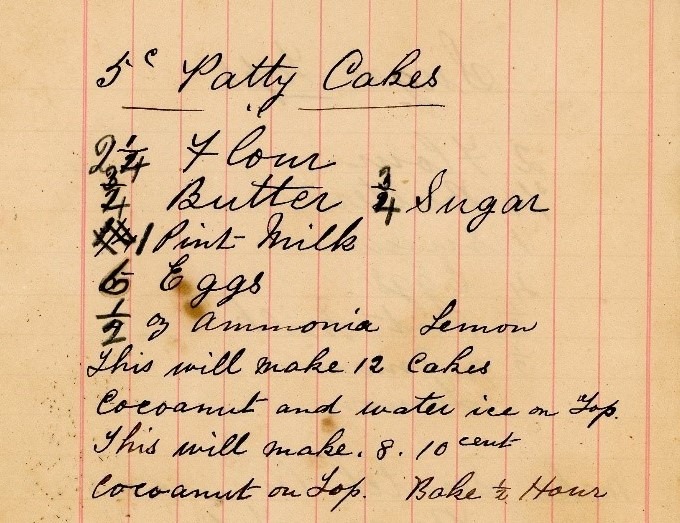 5c Patty Cakes
2 1/4 Flour
3/4 Butter 3/4 Sugar
1 Pint Milk
Eggs
1/2 oz Ammonia Lemon
This will make 12 Cakes
Cocoanut and water ice on Top.
This will make. 8. 10 cent
Cocoanut on Top. Bake 1/2 Hour